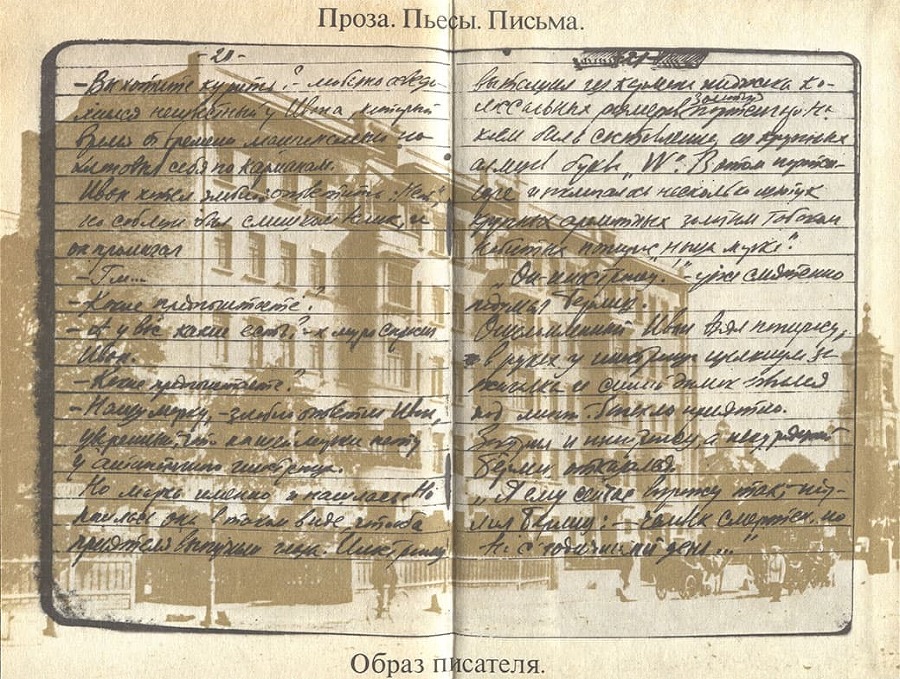 Проза. Пьесы. Письма.
- 20 -
- Вы хотите курить? - любезно осведо-
мился неизвестный у Ивана, который
время от времени машинально по-
хлопывал себя по карманам.
Иван хотел злобно ответить "Нет",
но соблазн был слишком велик, и
он промычал
- Гм...
- Какие предпочитаете?
- А у вас какие есть? - хмуро спросил
Иван.
- Какие предпочитаете?
- Нашу марку, - злобно ответил Иван,
уверенный что нашей марки нету
у иностранца.
Но марка именно и нашлась. Но
нашлась она в таком виде, что оба
приятеля выпучили глаза. Иностранец
- 21 -
вытащил из кармана пиджака ко-
лоссальных размеров золотой портсигар на
коем была составлена из крупных
алмазов буква "W". В этом портси-
гаре и нашлось несколько штук
крупных ароматных золотым табаком
набитых папирос "Наша марка".
"Он иностранец!" - уже смятенно
подумал Берлиоз
Ошеломленный Иван взял папиросу,
в руках у иностранца щелкнула за-
жигалка и синий дымок взвился
под липой. Запахло приятно.
Закурил и иностранец, а некурящий
Берлиоз отказался.
"Я ему сейчас возражу так, - поду-
мал Берлиоз: - человек смертен, но
на сегодняшний день..."
Образ писателя.